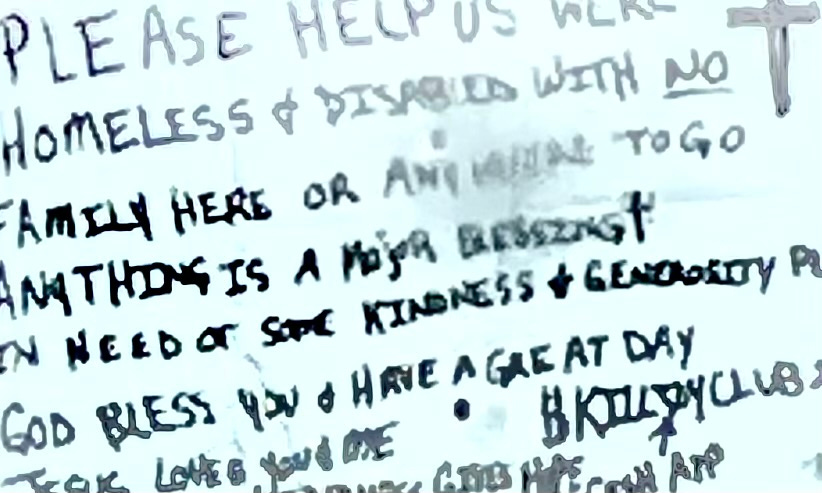 PLEASE HELP US WERE
HOMELESS & DISABLED WITH NO
FAMILY HERE OR ANYWHERE TO GO
ANYTHING IS A MAJOR BLESSING
IN NEED OF SOME KINDNESS & GENEROSITY
GOD BLESS YOU & HAVE A GREAT DAY
JESUS LOVES YOU & ME
CASH APP